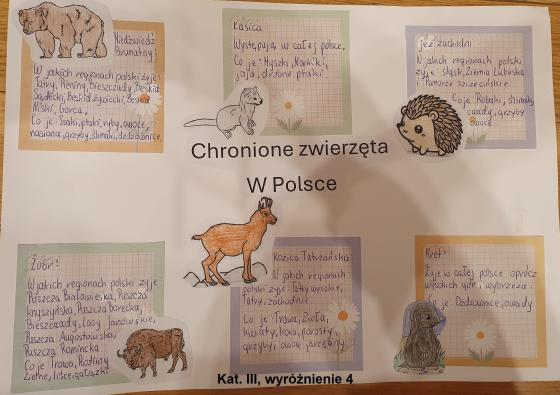 Niedźwiedź
Brunatny:
W jakich regionach polski żyje:
Tatry, Pieniny, bieszczady, Beskid
Sądecki, Beskid żywiecki, Beskid
Niski, Gorce.
Co je: Ssaki, ptaki, ryby, owoce,
nasiona, grzyby, ślimaki, dżdżownice
Łasica:
Występują w całej polsce.
Co je: Myszki, Norniki,
jaja, drobne ptaki.
jeż zachodni
W jakich regionach polski
żyje: śląsk, Ziemia Lubuska
Pomorze szczecińskie
Co je: Robaki, ślimaki,
owady, grzyby
owoce
Chronione zwierzęta
W Polsce
Żubr:
W jakich regionach polski żyje
Puszcza Białowieska, Puszcza
knyszyńska, Puszcza Borecka,
Bieszczady, Lasy Janowskie,
Puszcza Augustowska,
Puszcza Romincka.
Co je: Trawa, Rośliny
zielne, liście, gałązki
Kozica Tatrzańska:
W jakich regionach
polski żyje: Tatry wysokie,
Tatry zachodnie
Co je: Trawa, Zioła,
kwiaty, kora, porosty,
grzyby, owoce jarzębiny
Kret:
Żyje w całej polsce oprócz
wysokich gór, wybrzeża.
je: Dżdżownice, owady
Kat. III, wyróżnienie 4